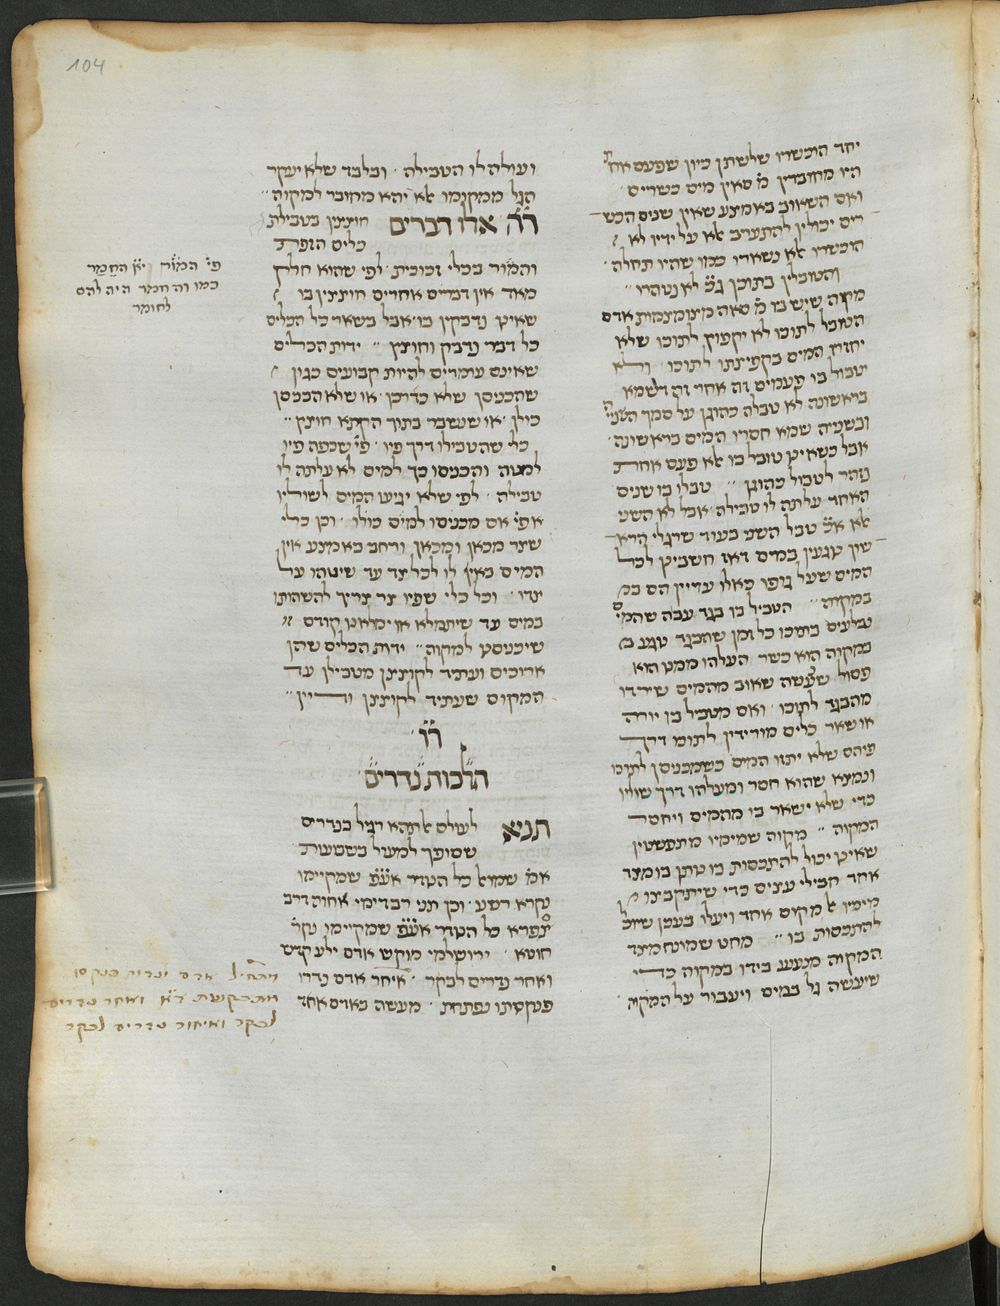 104
יחד הוכשרו שלשתן כיון שפעם אחת
היו מחוברין מ׳ סאין מים כשרים
ואם השאוב באמצע שאין שנים הכש
רים יכולין להתערב אלא על ידיו לא
הוכשרו אלא נשארו כמו שהיו תחלה
והטובלין בתוכן גם לא נטהרו
מקוה שיש בו מ׳ סאה מצומצמות אדם
הטובל לתוכו לא יקפוץ לתוכו שלא
יחזרו המים בקפיצתו לתוכו ולא
יטבול בו פעמים זה אחר זה דשמא
בראשונה לא טבלה כהוגן על סמך השני
ובשניה שמא חסרו המים בראשונה
אבל כשאינן טובל בו אלא פעם אחת
נזהר לטבול כהוגן טבלו בו שנים
האחד עלתה לו טבילה אבל לא השני
אלא אם טבל השני בעוד שרגלי הרא
שון נוגעין במים דאז חשבינן לכל
המים שעל גופו כאלו עדיין הם
במקוה הטביל בו בגד עבה שהמי
נבלעים בתוכו כל זמן שהבגד נוגע
במקוה הוא כשר העלהו ממנו הוא
פסול שנעשה שאוב מהמים שירדו
מהבגד לתוכו ואם מטביל בו יורה
או שאר כלים מורידין לתוכו דרך
פיהם שלא יתזו המים כשמכניסן לתוכו
ונמצא שהוא חסר ומעלהו דרך שוליו
כדי שלא ישאר בו מהמים ויחסר
המקוה מקוה שמימיו מתפשטין
שאינן יכול להתכסות בו נותן בו מצד
אחד חבילי עצים כדי שיתקבצו
מימיו למקום אחד ויעלו בענין שיוכל
להתכסות בו מחט שמונח מצד
המקוה מנענע בידו במקוה כדי
שיעשה גל במים ויעבור על המקוה
ועולה לו הטבילה ובלבד שלא יעקר
הגל ממקומו אלא יהא מחובר למקוה
רה אלו דברים חוצצין בטבילת
כלים הזפת
והמור בכלי זכוכית לפי שהוא חלק
מאד אין דברים אחרים חוצצין בו
שאינן נדבקין בו אבל בשאר כל הכלים
כל דבר נדבק וחוצץ ידות הכלים
שאינם עומדים להיות קבועים כגון
שהכניסן שלא כדרכן או שלא הכניסן
כולן או שנשבר בתוך הקתא חוצץ
כלי שהטבילו דרך פיו פי׳ שכפה פיו
למטה והכניסו כך למים לא עלתה לו
טבילה לפי שלא יגיעו המים לשוליו
אפי׳ אם מכניסו למים כולו וכן כלי
שצר מכאן ומכאן ורחב באמצע אין
המים באין לו לכל צד עד שיטהו על
צדו וכל כלי שפיו צר צריך להשהותו
במים עד שיתמלא או ימלאנו קודם
שיכניסנו למקוה ידות הכלים שהן
ארוכים ועתיד לקוצצן מטבילן עד
המקום שעתיד לקוצצן ודיין
רו
הלכות נדרים
תניא לעולם אל תהא רגיל בנדרים
שסופך למעול בשבועות
אמ׳ שמואל כל הנודר אע״פ שמקיימו
נקרא רשע וכן תני רב דימי אחוה דרב
ספרא כל הנודר אע״פ שמקיימו נקר׳
חוטא ירושלמי מוקש אדם ילע קדש
ואחר נדרים לבקר איחר אדם נדרו
פנקסיתו נפתחת מעשה באדם אחד
פי׳ המור יין החמר
כמו והחמר היה להם
לחומר
התחיל אדם ינדור פנקסו
מתבקשת ואחר נדרים
לבקר ואיחור נדרים לבקר